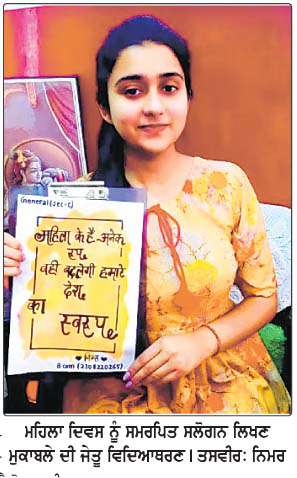 General (Sec-C)
महिला के हैं अनेक
रुप,
वही बदलेगी हमारे
देश
का स्वरुप,
B.com (2308220265)
ਮਹਿਲਾ ਦਿਵਸ ਨੂੰ ਸਮਰਪਿਤ ਸਲੋਗਨ ਲਿਖਣ
ਮੁਕਾਬਲੇ ਦੀ ਜੇਤੂ ਵਿਦਿਆਥਰਣ। ਤਸਵੀਰ: ਨਿਮਰ